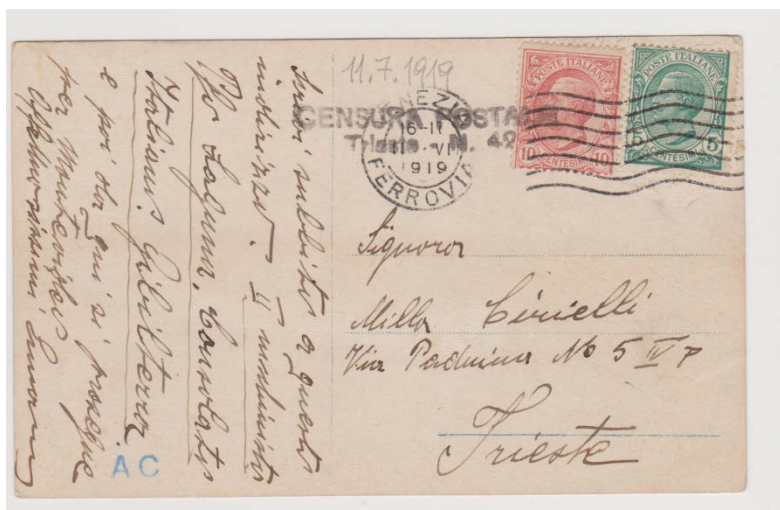 11.7.1919
CENSURA POSTALE
Trieste - N. 42
VENEZIA
16-17
11 VI
1919
FERROVIA
POSTE ITALIANE
10 CENTESIMI 10
POSTE ITALIANE
5 CENTESIMI 5
Signora
Milla Ciricelli
Via Paduina No 5 IV p
Trieste
subito a questo
indirizzo: II macchinista
Pfo Laguna, Consolato
Italiano Gibilterra
e poi da qui si prosegue
per Montevideo
Affettuosissimi
AC